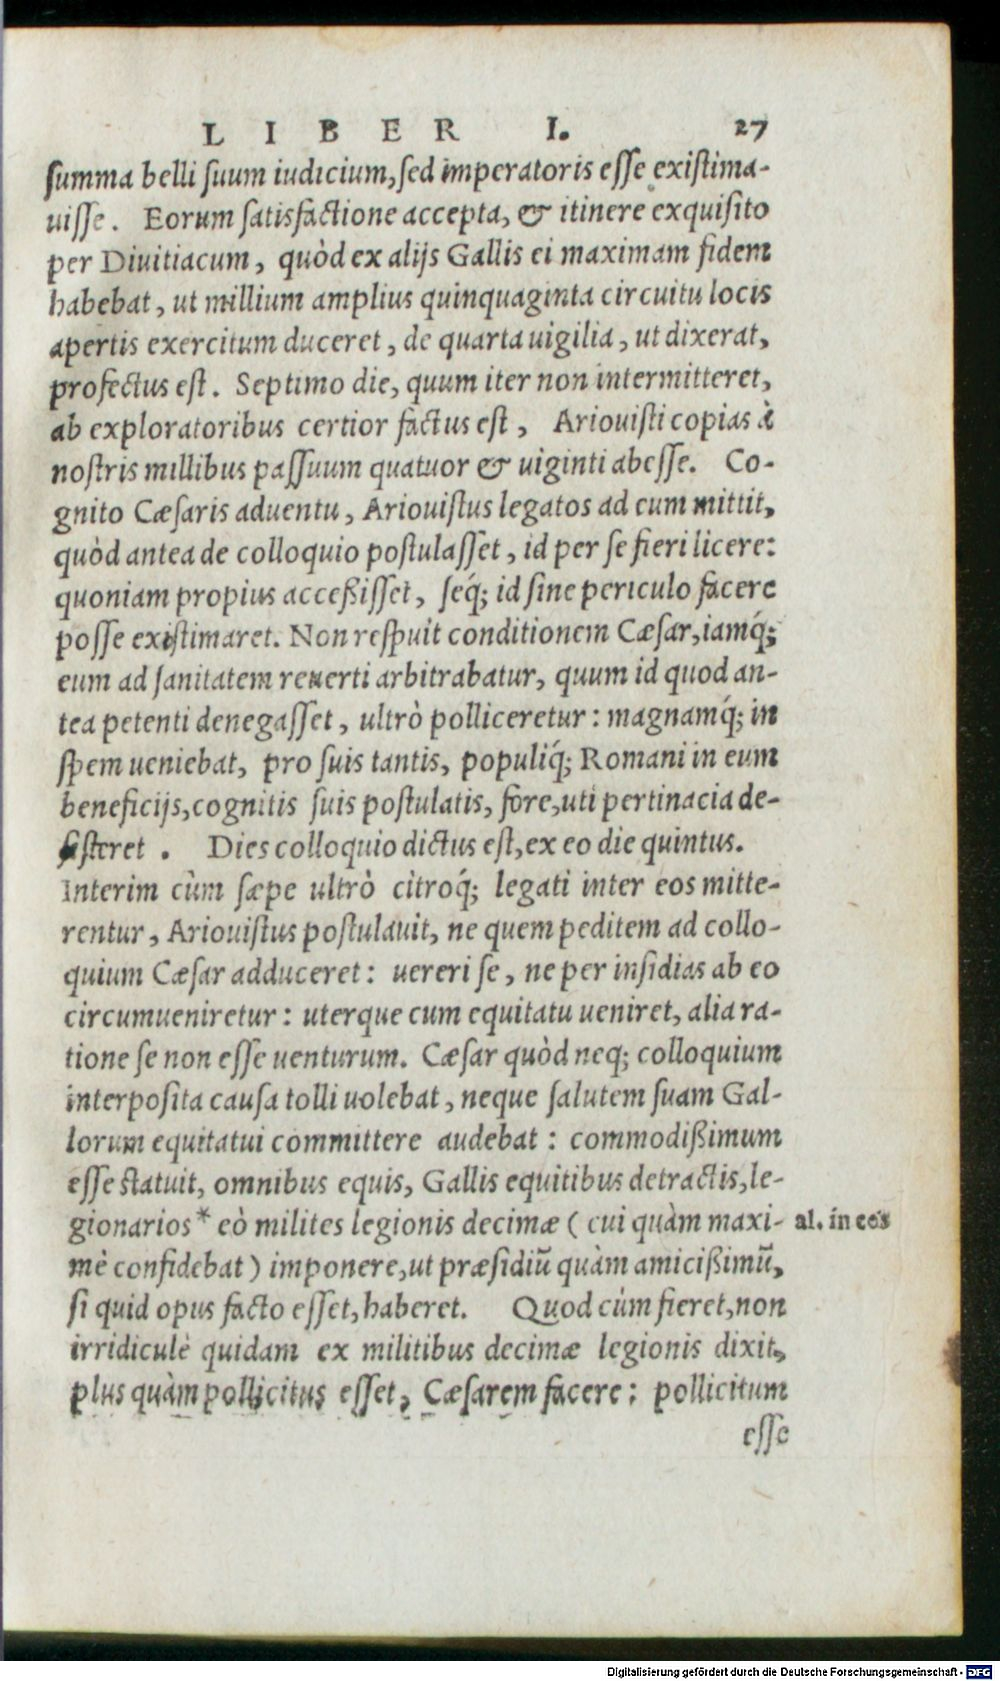 LIBER I. 27
summa belli suum iudicium, sed imperatoris esse existima-
uisse. Eorum satisfactione accepta, & itinere exquisito
per Diuitiacum, quòd ex alijs Gallis ei maximam fidem
habebat, ut millium amplius quinquaginta circuitu locis
apertis exercitum duceret, de quarta uigilia, ut dixerat,
profectus est. Septimo die, quum iter non intermitteret,
ab exploratoribus certior factus est, Ariouisti copias à
nostris millibus passuum quatuor & uiginti abesse. Co-
gnito Cæsaris aduentu, Ariouistus legatos ad eum mittit,
quòd antea de colloquio postulasset, id per se fieri licere:
quoniam propius acceßisset, seq́; id sine periculo facere
posse existimaret. Non respuit conditionem Cæsar, iamq́;
eum ad sanitatem reuerti arbitrabatur, quum id quod an-
tea petenti denegasset, ultrò polliceretur: magnamq́; in
spem ueniebat, pro suis tantis, populiq́; Romani in eum
beneficijs, cognitis suis postulatis, fore, uti pertinacia de-
sisteret. Dies colloquio dictus est, ex eo die quintus.
Interim cùm sæpe ultrò citroq́; legati inter eos mitte-
rentur, Ariouistus postulauit, ne quem peditem ad collo-
quium Cæsar adduceret: uereri se, ne per insidias ab eo
circumueniretur: uterque cum equitatu ueniret, alia ra-
tione se non esse uenturum. Cæsar quòd neq; colloquium
interposita causa tolli uolebat, neque salutem suam Gal-
lorum equitatui committere audebat: commodißimum
esse statuit, omnibus equis, Gallis equitibus detractis, le-
gionarios* eò milites legionis decimæ (cui quàm maxi- al. in eos
mè confidebat) imponere, ut præsidiũ quàm amicißimũ,
si quid opus facto esset, haberet. Quod cùm fieret, non
irridiculè quidam ex militibus decimæ legionis dixit,
plus quàm pollicitus esset, Cæsarem facere: pollicitum
esse
Digitalisierung gefördert durch die Deutsche Forschungsgemeinschaft - DFG